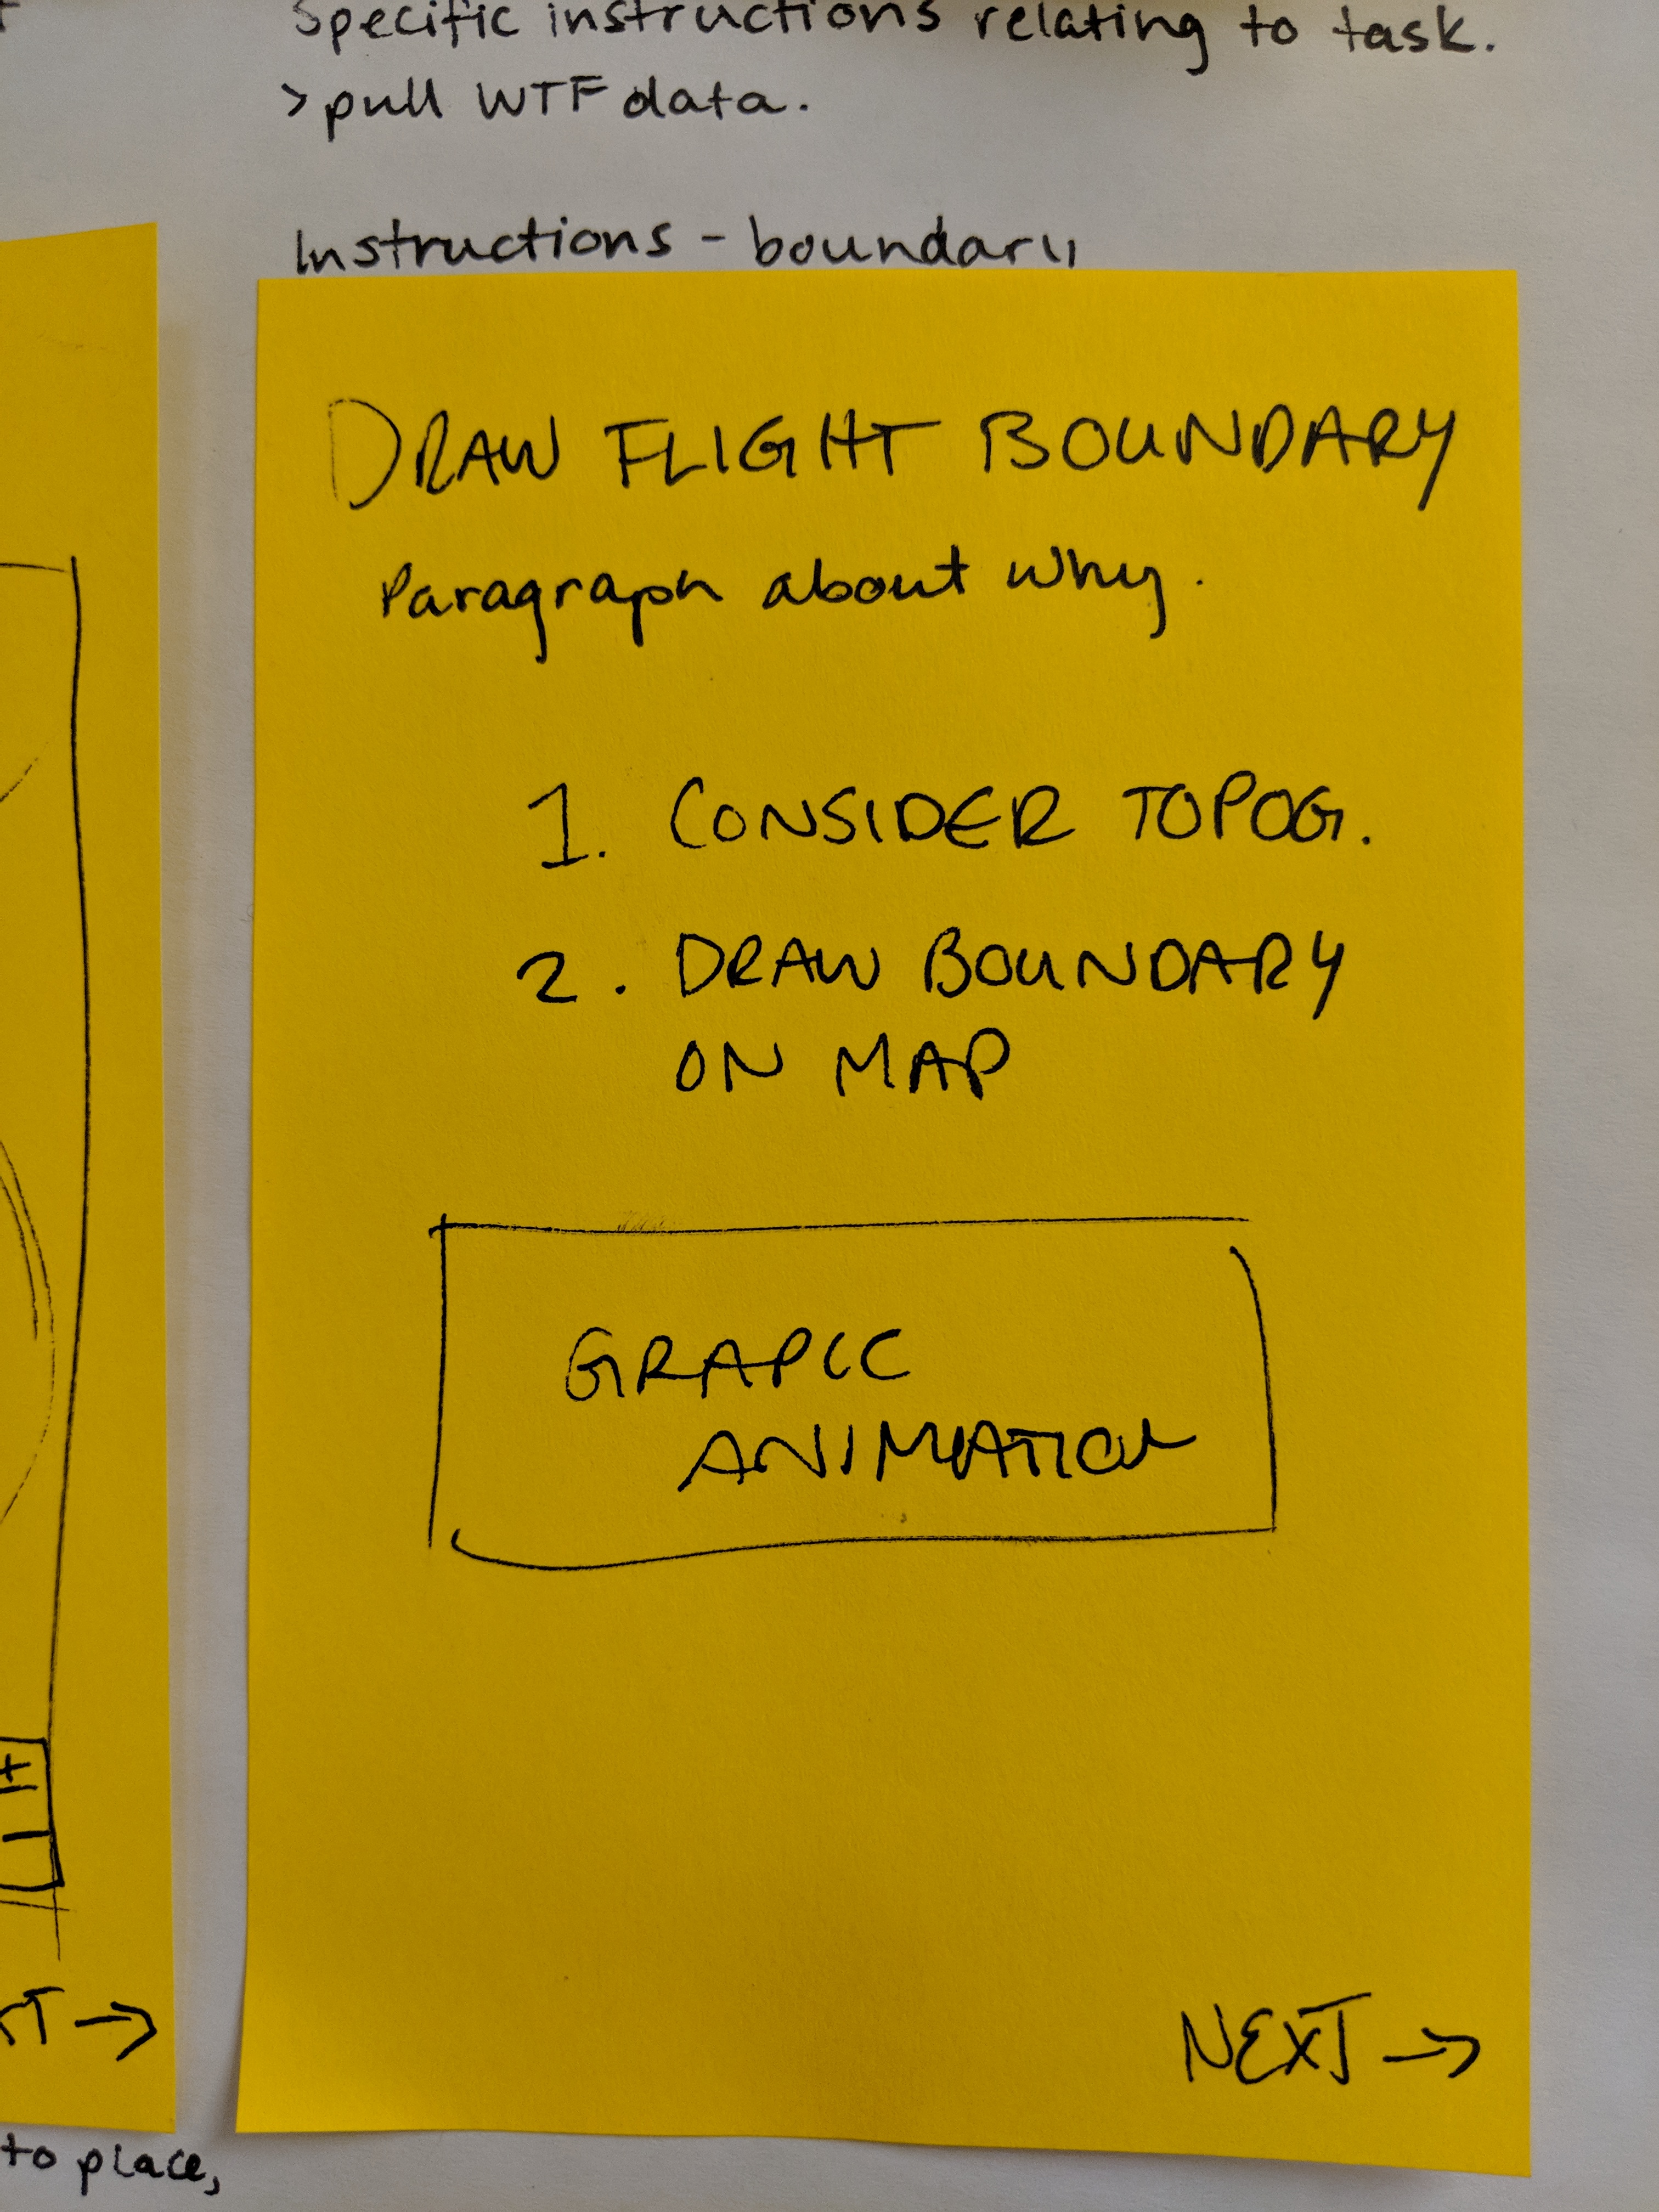 Specific instructions relating to task.
> pull WTF data.
Instructions - boundary
DRAW FLIGHT BOUNDARY
Paragraph about why.
1. CONSIDER TOPOG.
2. DRAW BOUNDARY
ON MAP
GRAPIC
ANIMATION
NEXT →
to place,